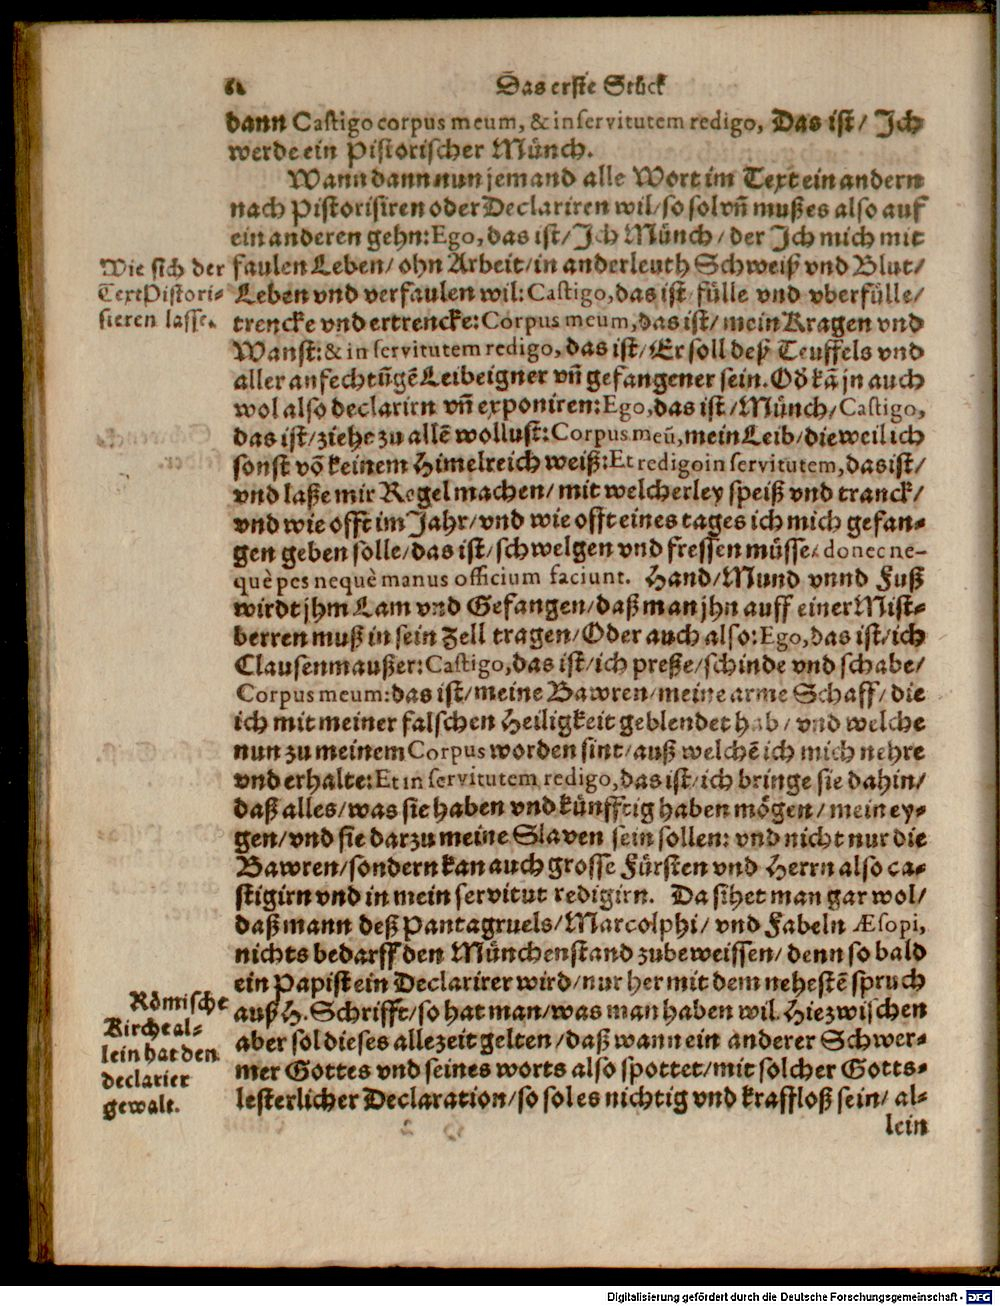 Das erste Stück
dann Castigo corpus meum, & in servitutem redigo, Das ist/ Ich
werde ein Pistorischer Münch.
Wann dann nun jemand alle Wort im Text ein andern
nach Pistorisiren oder Declariren wil/ so sol vñ muß es also auf
ein anderen gehn: Ego, das ist/ Ich Münch/ der Ich mich mit
Wie sich der
Text Pistori-
sieren lasse.
faulen Leben/ ohn Arbeit/ in anderleuth Schweiß vnd Blut/
Leben vnd verfaulen wil: Castigo, das ist fülle vnd vberfülle/
trencke vnd ertrencke: Corpus meum, das ist/ mein Kragen vnd
Wanst: & in servitutem redigo, das ist/ Er soll deß Teuffels vnd
aller anfechtũgẽ Leibeigner vñ gefangener sein. Od kã jn auch
wol also declarirn vñ exponiren: Ego, das ist/ Münch/ Castigo,
das ist/ ziehe zu allẽ wollust: Corpus meũ, mein Leib/ dieweil ich
sonst võ keinem Himelreich weiß: Et redigo in servitutem, das ist/
vnd laße mir Regel machen/ mit welcherley speiß vnd tranck/
vnd wie offt im Jahr/ vnd wie offt eines tages ich mich gefan-
gen geben solle/ das ist/ schwelgen vnd fressen müsse/ donec ne-
què pes nequè manus officium faciunt. Hand/ Mund vnnd Fuß
wirdt jhm Lam vnd Gefangen/ daß man jhn auff einer Mist-
berren muß in sein Zell tragen/ Oder auch also: Ego, das ist/ ich
Clausenmaußer: Castigo, das ist/ ich preße/ schinde vnd schabe/
Corpus meum: das ist/ meine Bawren/ meine arme Schaff/ die
ich mit meiner falschen Heiligkeit geblendet hab/ vnd welche
nun zu meinem Corpus worden sint/ auß welchẽ ich mich nehre
vnd erhalte: Et in servitutem redigo, das ist/ ich bringe sie dahin/
daß alles/ was sie haben vnd künfftig haben mögen/ mein ey-
gen/ vnd sie darzu meine Slaven sein sollen: vnd nicht nur die
Bawren/ sondern kan auch grosse Fürsten vnd Herrn also ca-
stigirn vnd in mein servitut redigirn. Da sihet man gar wol/
daß mann deß Pantagruels/ Marcolphi/ vnd Fabeln Æsopi,
nichts bedarff den Münchenstand zubeweissen/ denn so bald
ein Papist ein Declarirer wird/ nur her mit dem nehestẽ spruch
Römische
Kirche al-
lein hat den
declarier
gewalt.
auß H. Schrifft/ so hat man/ was man haben wil. Hiezwischen
aber sol dieses allezeit gelten/ daß wann ein anderer Schwer-
mer Gottes vnd seines worts also spottet/ mit solcher Gotts-
lesterlicher Declaration/ so sol es nichtig vnd krafftloß sein/ al-
lein
Digitalisierung gefördert durch die Deutsche Forschungsgemeinschaft - DFG